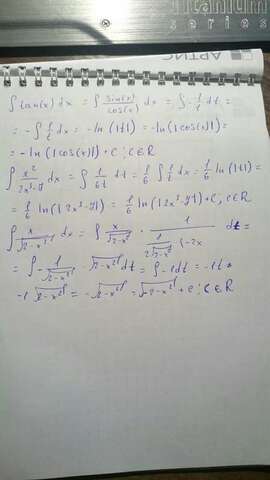 titanium
series
ARTИС
∫ tan(x) dx = ∫ sin(x)/cos(x) dx = ∫ -1/t dt =
= -∫ 1/t dx = -ln(|t|) = -ln(|cos(x)|) =
= -ln(|cos(x)|) + C ; C∈R
∫ x²/(2x³-4) dx = ∫ 1/6t dt = 1/6 ∫ 1/t dx = 1/6 ln(|t|) =
= 1/6 ln(|2x³-4|) = 1/6 ln(|2x³-4|) + C, C∈R
∫ x/√(2-x²) dx = ∫ x/√(2-x²) · 1/(1/(2√(2-x²)) · (-2x) dt =
= ∫ -1/√(2-x²) · √(2-x²) dt = ∫ -1dt = -1t =
-1 √(2-x²) = -√(2-x²) = √(-2-x²) + C ; C∈R